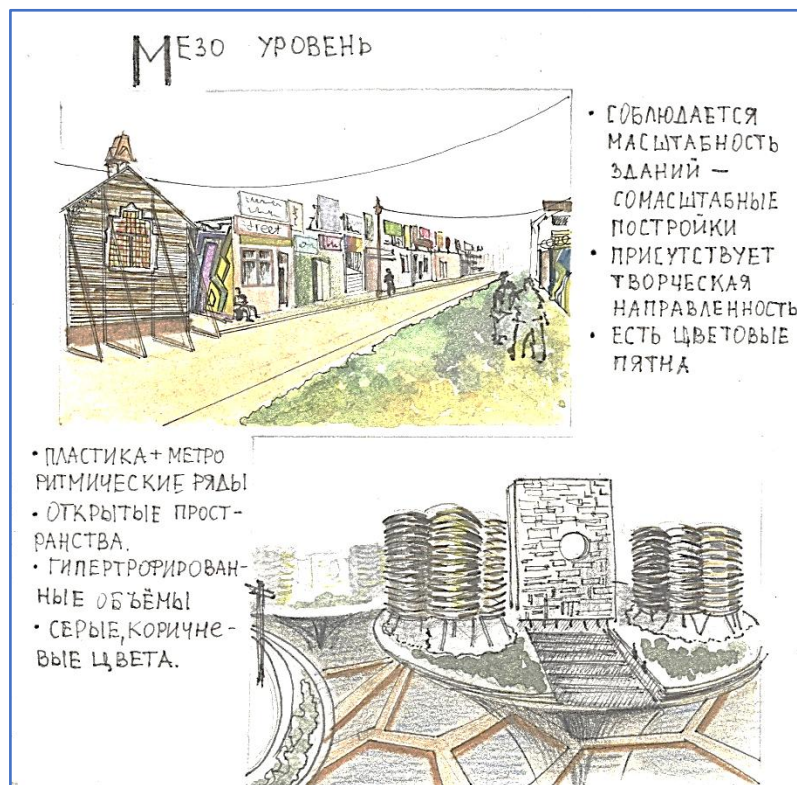 МЕЗО УРОВЕНЬ
• СОБЛЮДАЕТСЯ
МАСШТАБНОСТЬ
ЗДАНИЙ –
СОМАСШТАБНЫЕ
ПОСТРОЙКИ
• ПРИСУТСТВУЕТ
ТВОРЧЕСКАЯ
НАПРАВЛЕННОСТЬ
• ЕСТЬ ЦВЕТОВЫЕ
ПЯТНА
street
• ПЛАСТИКА+МЕТРО
РИТМИЧЕСКИЕ РЯДЫ
• ОТКРЫТЫЕ ПРОСТ-
РАНСТВА.
• ГИПЕРТРОФИРОВАН-
НЫЕ ОБЪЁМЫ
• СЕРЫЕ, КОРИЧНЕ-
ВЫЕ ЦВЕТА.